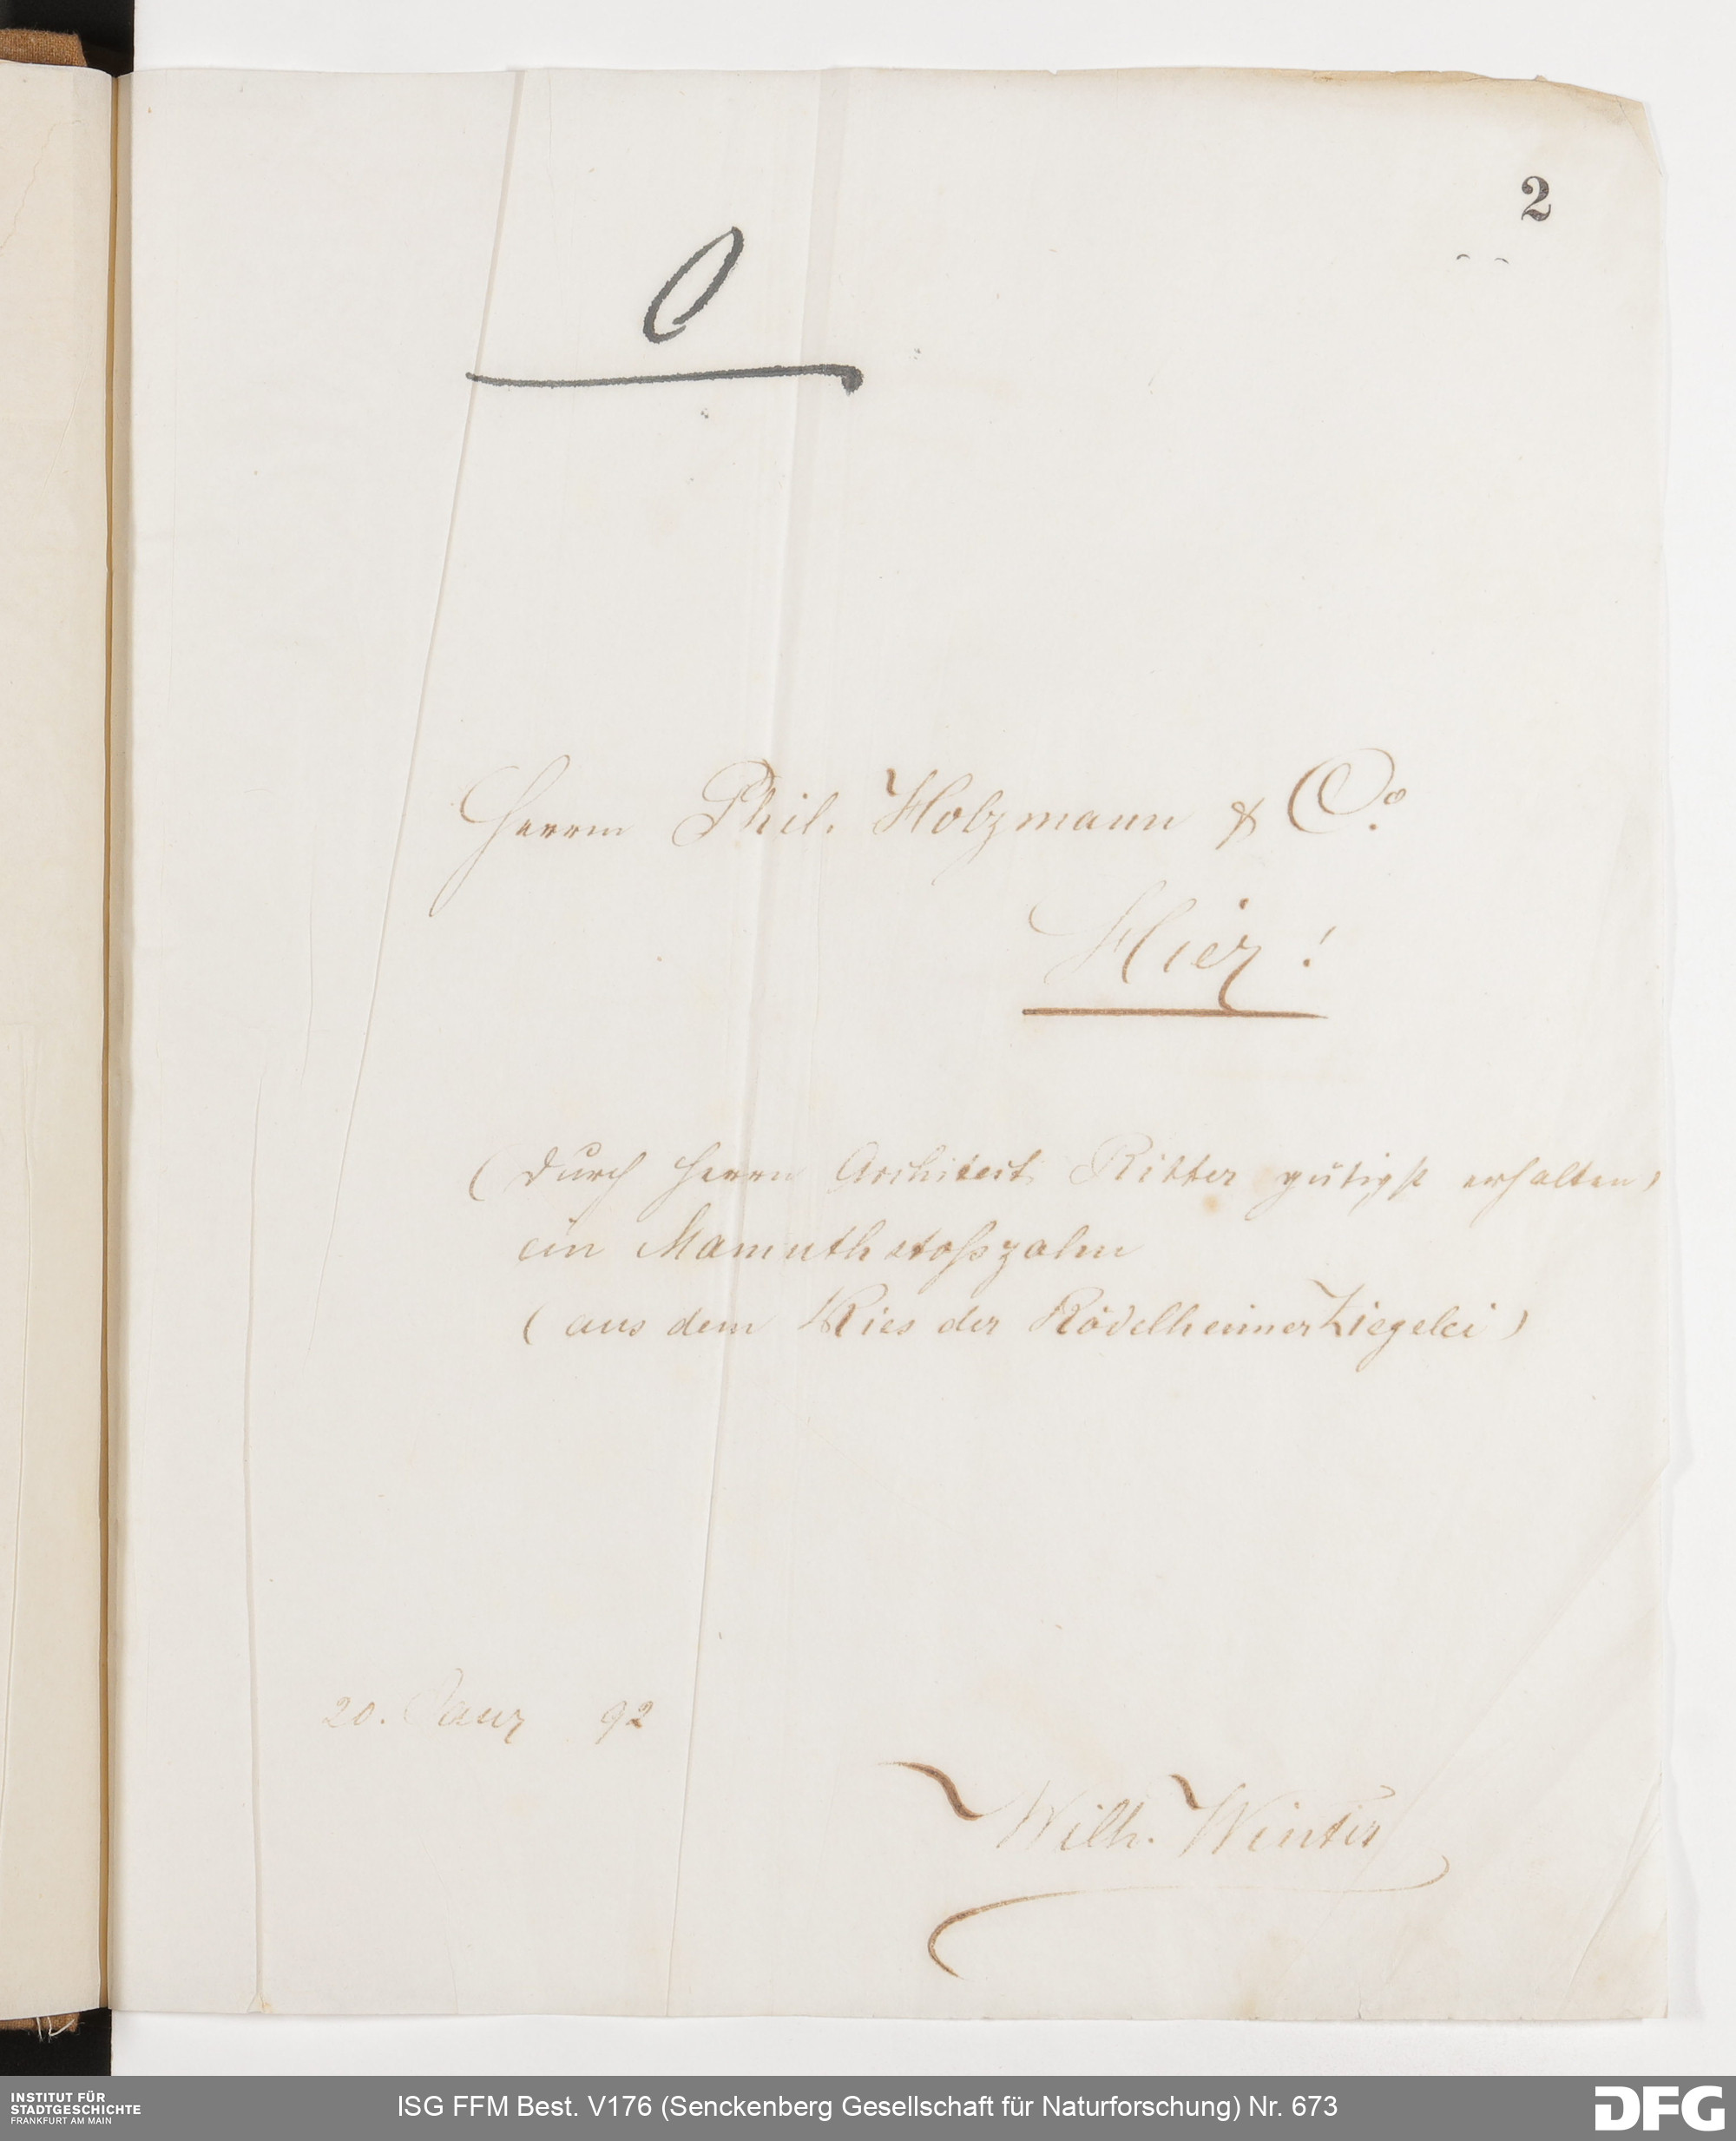 2
0
Herrn Phil. Holzmann & Co.
Hier!
(durch Herrn Architect Ritter gütigst erhalten)
ein Mamuthstosszahn
(aus dem Kies der Rödelheimer Ziegelei)
20. Janr 92
Wilh. Winter
INSTITUT FÜR
STADTGESCHICHTE
FRANKFURT AM MAIN
ISG FFM Best. V176 (Senckenberg Gesellschaft für Naturforschung) Nr. 673
DFG